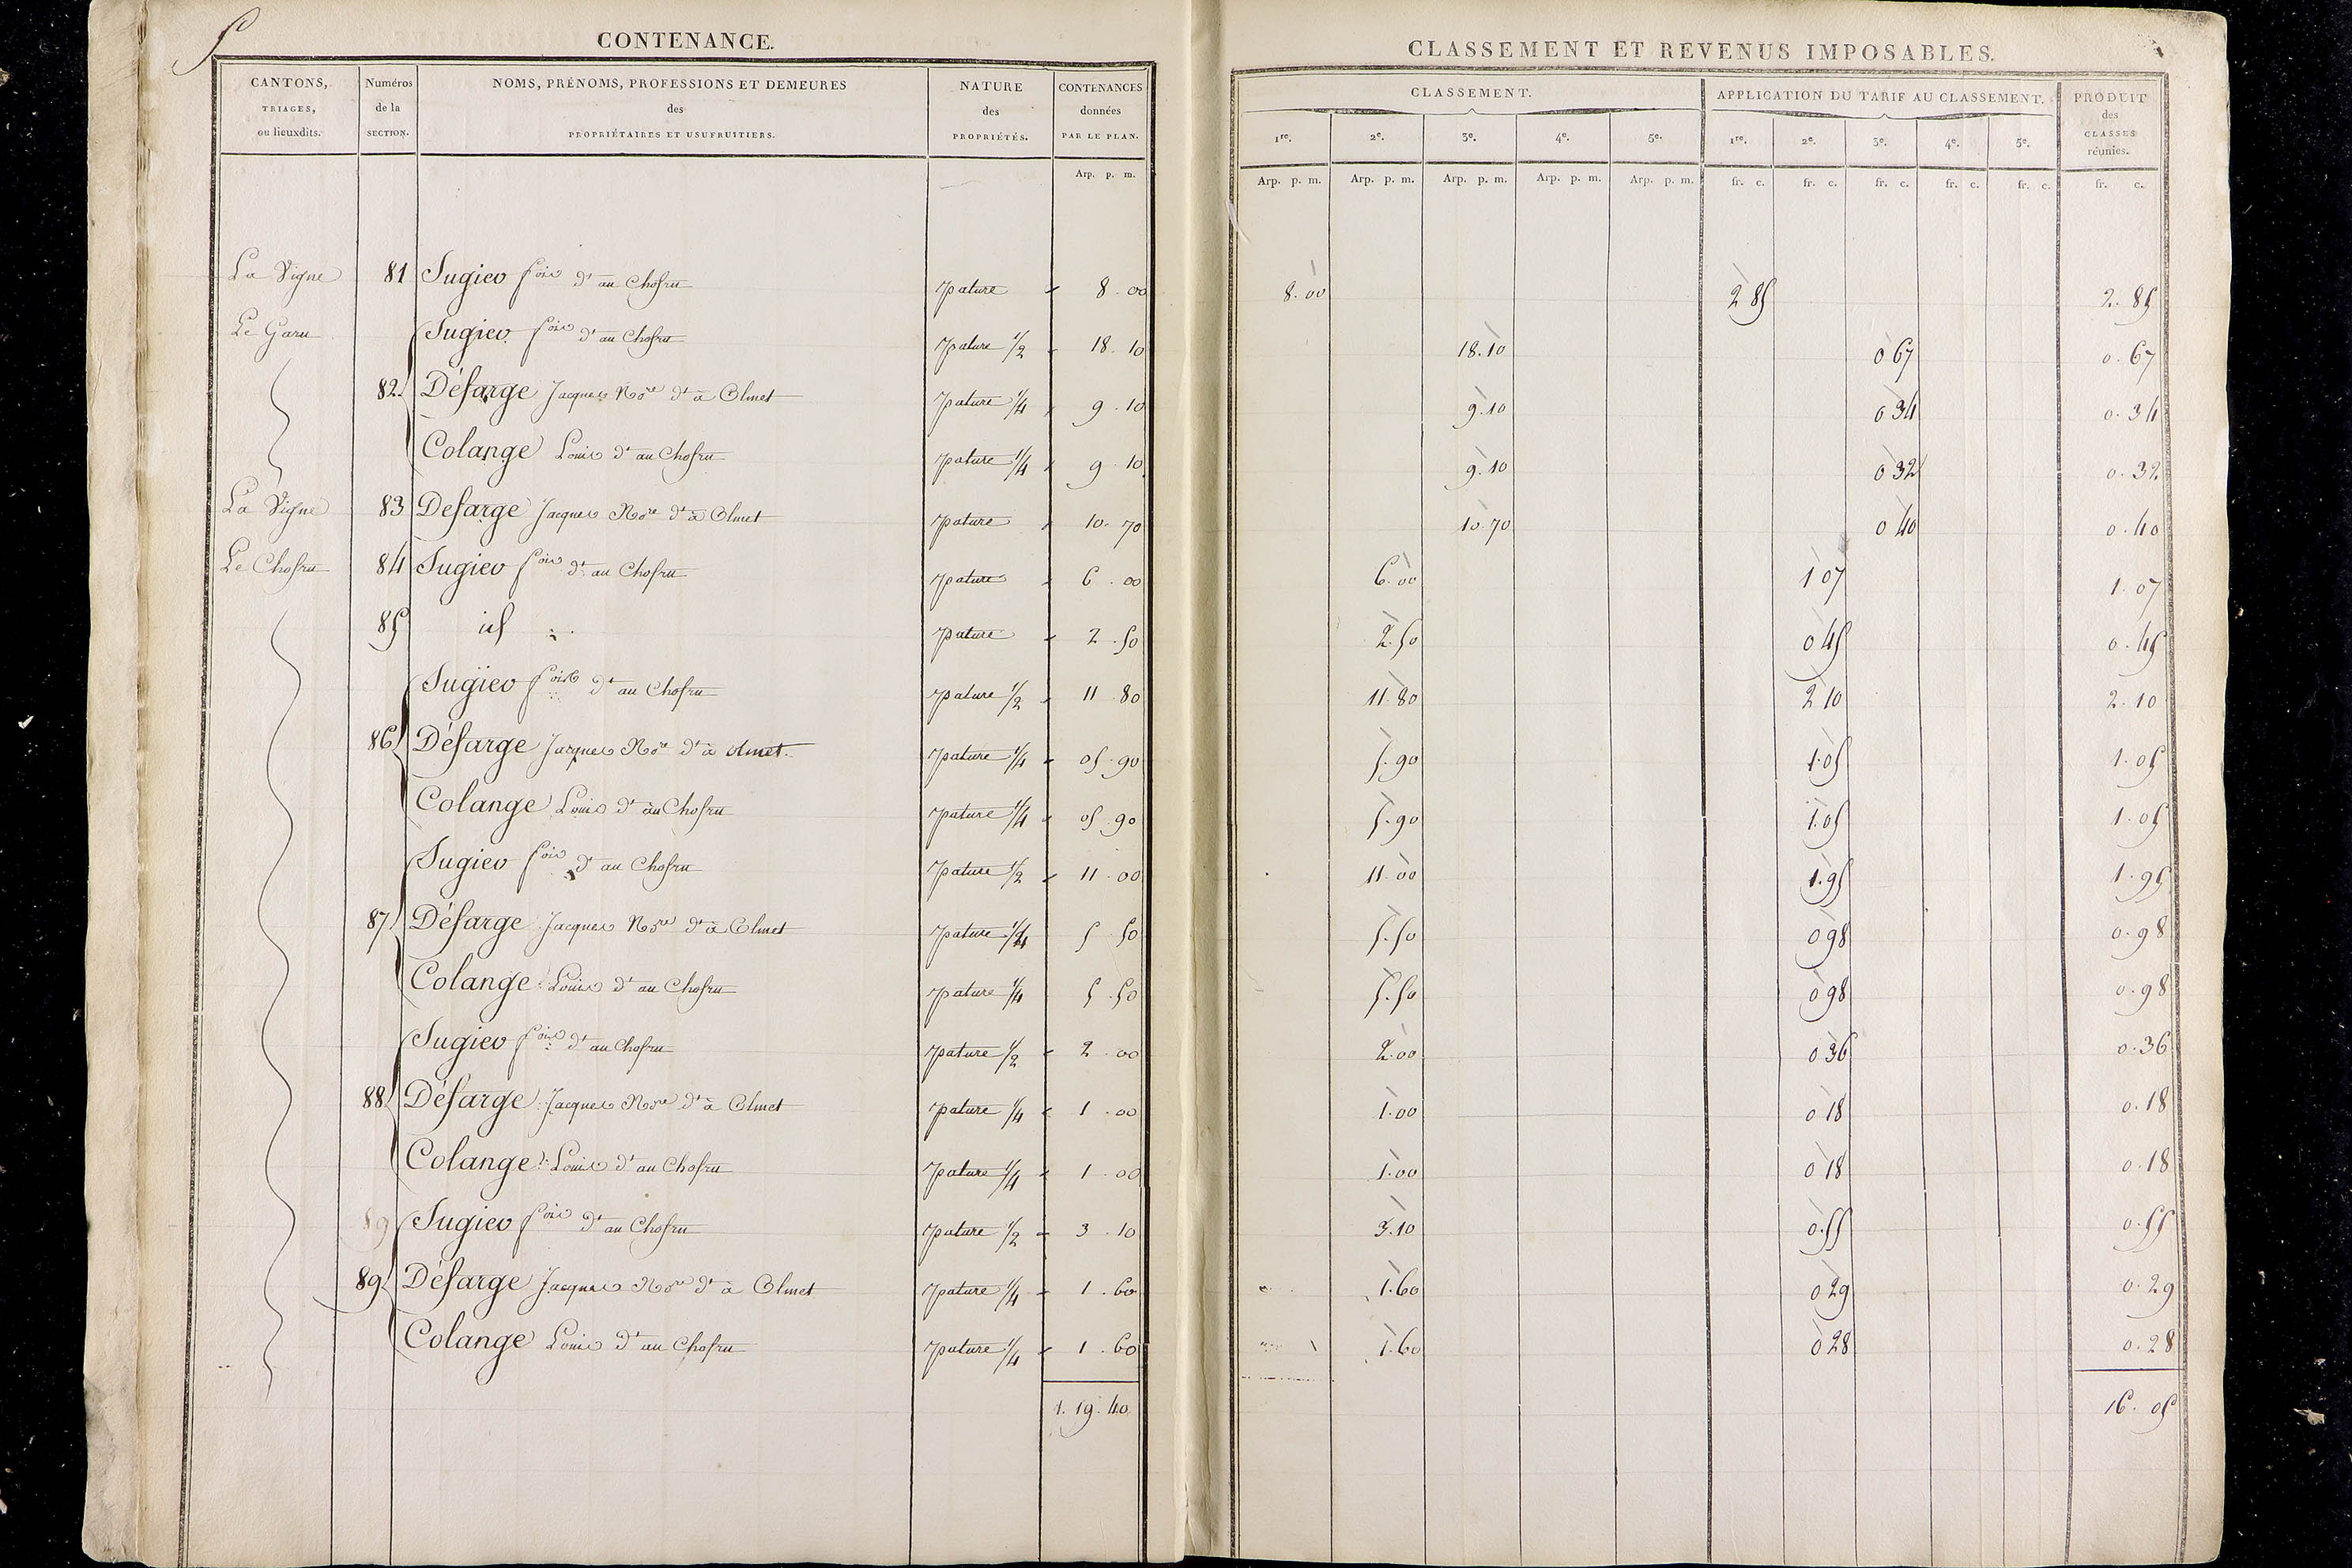 CONTENANCE.
CANTONS, TRIAGES, ou lieuxdits.
Numéros de la SECTION.
NOMS, PRÉNOMS, PROFESSIONS ET DEMEURES des PROPRIÉTAIRES ET USUFRUITIERS.
NATURE des PROPRIÉTÉS.
CONTENANCES données PAR LE PLAN.
Arp. p. m.
CLASSEMENT ET REVENUS IMPOSABLES.
CLASSEMENT.
APPLICATION DU TARIF AU CLASSEMENT.
PRODUIT des CLASSES réunies.
1re. 2e. 3e. 4e. 5e. 1re. 2e. 3e. 4e. 5e.
Arp. p. m. Arp. p. m. Arp. p. m. Arp. p. m. Arp. p. m. fr. c. fr. c. fr. c. fr. c. fr. c. fr. c.
La Vigne 81 Sugier fois dt au Chofru pature 8.00 8.00 2 85 2.85
Le Garu Sugier fois dt au Chofru pature 1/2 18.10 18.10 0 67 0.67
82 Défarge Jacques Nore dt à Olmet pature 1/4 9.10 9.10 0 34 0.34
Colange Louis dt au Chofru pature 1/4 9.10 9.10 0 32 0.32
La Vigne 83 Defarge Jacques Nore dt à Olmet pature 10.70 10.70 0 40 0.40
Le Chofru 84 Sugier fois dt au Chofru pature 6.00 6.00 1 07 1.07
85 id pature 2.50 2.50 0 45 0.45
Sugier fois dt au Chofru pature 1/2 11.80 11.80 2 10 2.10
86 Défarge Jacques Nore dt à Olmet pature 1/4 05.90 5.90 1.05 1.05
Colange Louis dt au Chofru pature 1/4 05.90 5.90 1.05 1.05
Sugier fois dt au Chofru pature 1/2 11.00 11.00 1.95 1.95
87 Défarge Jacques Nore dt à Olmet pature 1/4 5.50 5.50 0 98 0.98
Colange Louis dt au Chofru pature 1/4 5.50 5.50 0 98 0.98
Sugier fois dt au Chofru pature 1/2 2.00 2.00 0 36 0.36
88 Défarge Jacques Nore dt à Olmet pature 1/4 1.00 1.00 0 18 0.18
Colange Louis dt au Chofru pature 1/4 1.00 1.00 0 18 0.18
89 Sugier fois dt au Chofru pature 1/2 3.10 3.10 0.55 0.55
89 Défarge Jacques Nore dt à Olmet pature 1/4 1.60 1.60 0 29 0.29
Colange Louis dt au Chofru pature 1/4 1.60 1.60 0 28 0.28
1.19.40 16.05